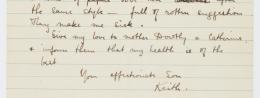 the same style — full of rotten suggestions.
They make me sick.
Give my love to mother Dorothy & Catherine,
& inform them that my health is of the
best
Your affectionate Son
Keith.